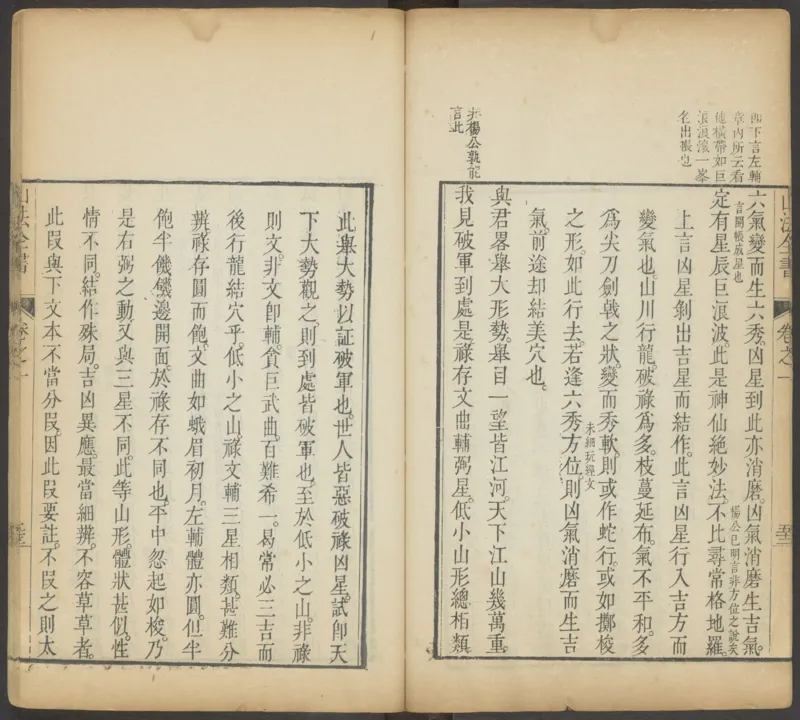 四下言左輔
章內所云看
他橫帶如巨
浪浪滾一峯
名出帳也
六氣變而生六秀。凶星到此亦消磨。凶氣消磨生吉氣。
言開帳成星也
楊公已明言非方位之說矣
定有星辰巨浪波。此是神仙絕妙法。不比尋常格地羅。
上言凶星剝出吉星而結作。此言凶星行入吉方而
變氣也。山川行龍。破祿爲多。枝蔓延布。氣不平和。多
爲尖刀劍戟之狀。變而秀軟。則或作蛇行。或如擲梭
未細玩經文
之形。如此行去。若逢六秀方位。則凶氣消磨而生吉
氣。前途却結美穴也。
非楊公孰能
言此
與君畧舉大形勢。舉目一望皆江河。天下江山幾萬重。
我見破軍到處是。祿存文曲輔弼星。低小山形總栢類
山法全書
卷之一
此舉大勢以証破軍也。世人皆惡破祿凶星。試卽天
下大勢觀之。則到處皆破軍也。至於低小之山。非祿
則文。非文卽輔。貪巨武曲。百難希一。曷常必三吉而
後行龍結穴乎。低小之山。祿文輔三星相類。甚難分
辨。祿存圓而飽。文曲如蛾眉初月。左輔體亦圓。但半
飽半饑。饑邊開面。於祿存不同也。平中忽起如梭。乃
是右弼之動。又與三星不同。此等山形。體狀甚似。性
情不同。結作殊局。吉凶異應。最當細辨。不容草草者。
此段與下文本不當分段。因此段要註。不段之則太
山法全書
卷之一